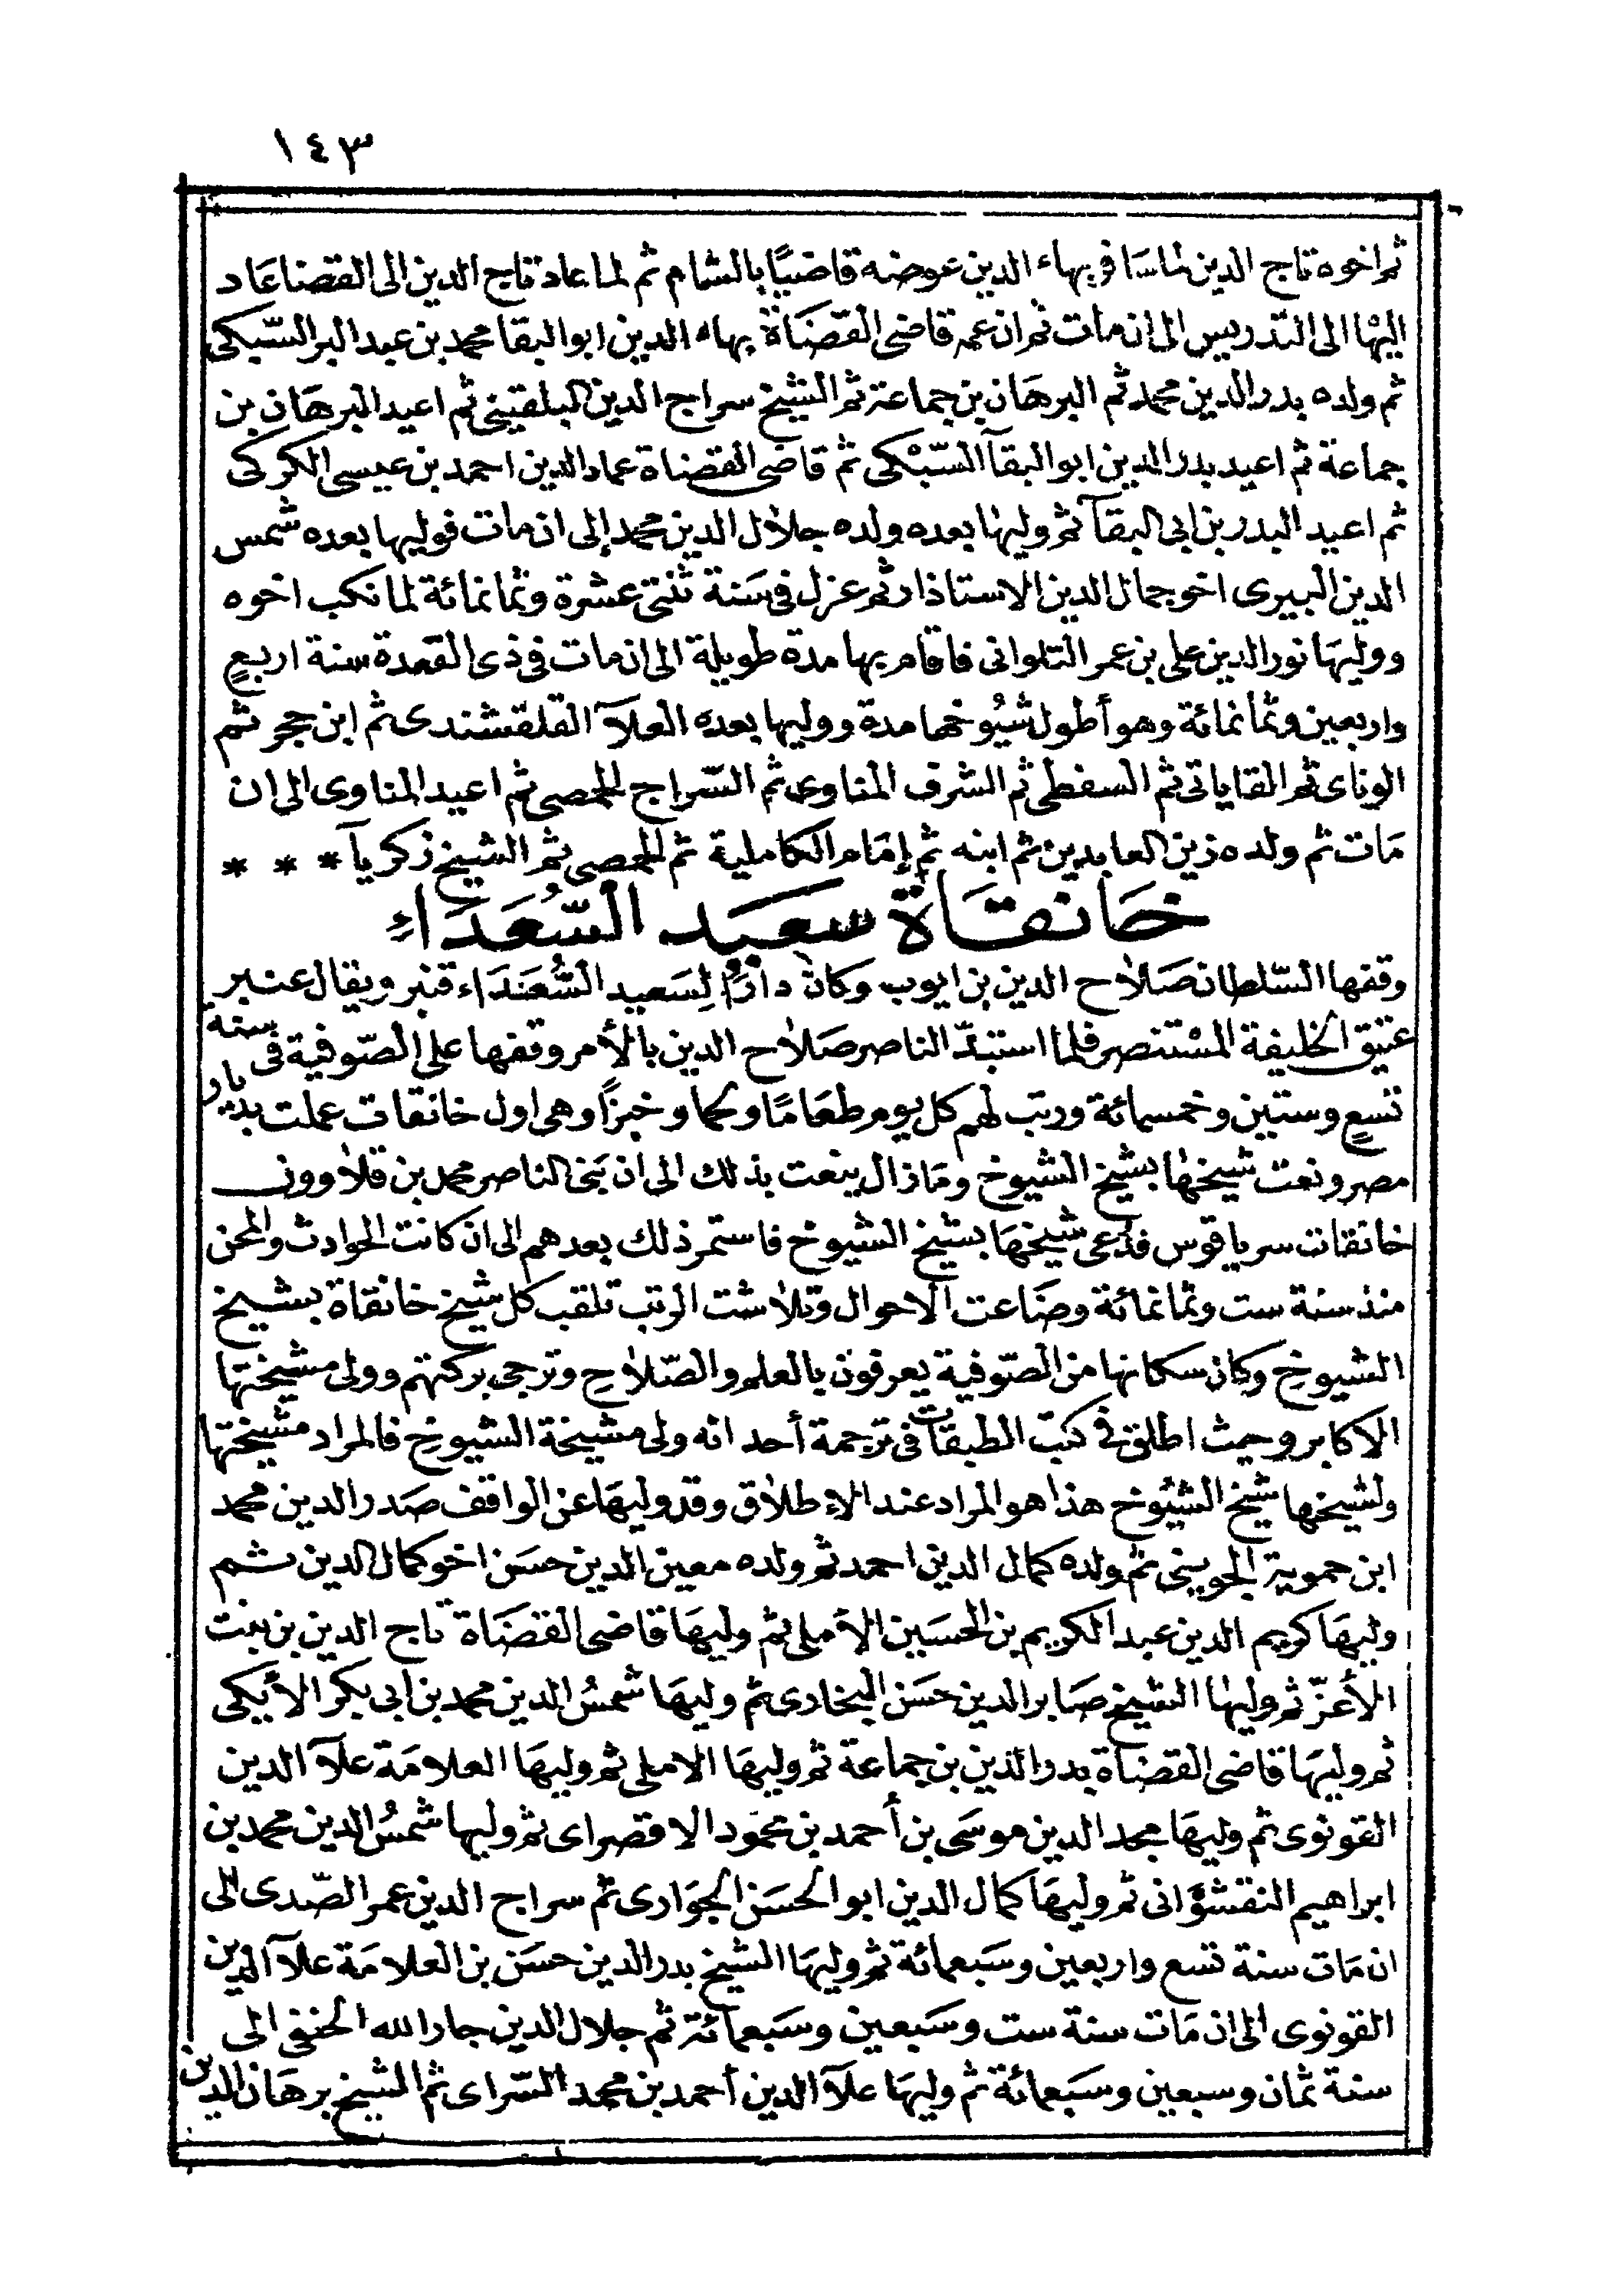 ١٤٣
ثم اخوه تاج الدين لما سافر بهاء الدين عوضه قاضيًا بالشام ثم لما عاد تاج الدين الى القضا عَاد
اليهْا الى التدريس الى ان مات ثم ان عمه قاضى القضَاة بهاء الدين ابو البقا محمد بن عبد البر السّبكى
ثم ولده بدر الدين محمد ثم البرهَان بن جماعة ثم الشيخ سراج الدين البلقينى ثم اعيد البرهَان بن
جماعة ثم اعيد بدر الدين ابو البقآ السّبْكى ثم قاضى القضاة عماد الدين احمد بن عيسى الكركى
ثم اعيد البدر بن ابى البقآ ثم وليها بعده ولده جلال الدين محمد إلى ان مات فوليها بعده شمس
الدين البيرى اخو جمال الدين الاستاذار ثم عزل فى سَنة ثنتى عشرة وثمانمائة لما نكب اخوه
ووليهَا نور الدين على بن عمر التلوانى فاقام بها مدة طويلة الى ان مات فى ذى القعدة سنة اربعٍ
واربعين وثمانمائة وهو أطول شيُوخها مدة ووليها بعده العلآ القلقشندى ثم ابن حجر ثم
الوناى ثم القاياتى ثم السفطى ثم الشرف المناوى ثم السّراج الحمصى ثم اعيد المناوى الى ان
مَات ثم ولده زين العابدين ثم ابنه ثم إمَام الكاملية ثم الحمصى ثم الشيخ زكريآ * * *
خَانقَاة سعيد السُّعَدَاءِ
وقفها السّلطان صَلاح الدين بن ايوب وكَانَ دارًا لِسَعيد السُّعَدَاء قنبر ويقال عنبر
عتيق الخليفة المسْتنصر فلما استبدّ الناصر صَلاح الدين بالأمر وقفها على الصّوفية فى سنة
تسعٍ وستين وخمسمائة ورتب لهم كل يوم طعَامًا ولحما وخبزًا وهى اول خانقات عملت بديار
مصر ونعت شيخها بشيخ الشيوخ ومَازال ينعت بذلك الى ان بَنى الناصر محمد بن قلاوون
خانقات سرياقوس فدُعى شيخهَا بشيخ الشيوخ فاستمر ذلك بعدهم الى ان كانت الحوادث والمحن
منذ سنة ست وثمانمائة وضَاعت الاحوال وتلاشت الرتب تلقب كل شيخ خانقاة بشيخ
الشيوخِ وكان سكانها من الصّوفية يعرفون بالعلم والصّلاحِ وترجى بركتهم وولى مشيختها
الاكابر وحيث اطلق فى كتب الطبقات فى ترجمة أحد انه ولى مشيخة الشيوخِ فالمراد مشيختها
ولشيخها شيخ الشيُوخ هذا هو المراد عند الإطلاق وقد وليهَا عن الواقف صَدر الدين محمد
ابن حموية الجوينى ثم ولده كمال الدين احمد ثم ولده معين الدين حسَن اخو كمال الدين ثم
وليهَا كريم الدين عبد الكريم بن الحسَين الأملى ثم وليهَا قاضى القضَاة تاج الدين بن بنت
الأعزّ ثم وليها الشيخ صَابر الدين حسَن البخارى ثم وليهَا شمسُ الدين محمد بن ابى بكر الأيكى
ثم وليهَا قاضى القضاة بدر الدين بن جماعة ثم وليهَا الاملى ثم وليهَا العلامَة علآ الدين
القونوى ثم وليهَا مجد الدين موسَى بن أحمد بن محمود الاقصراى ثم وليها شمسُ الدين محمد بن
ابراهيم النقشوَانى ثم وليهَا كمال الدين ابو الحسَن الجوَارى ثم سراج الدين عمر الصّدى الى
ان مَات سنة تسع واربعين وسَبعمائة ثم وليهَا الشيخ بدر الدين حسَن بن العلامَة علآ الدين
القونوى الى ان مَات سنة ست وسَبعين وسَبعمائة ثم جلال الدين جار الله الحنفى الى
سنة ثمان وسبعين وسَبعمائة ثم وليهَا علآ الدين أحمد بن محمد السّراى ثم الشيخ برهَان الدين